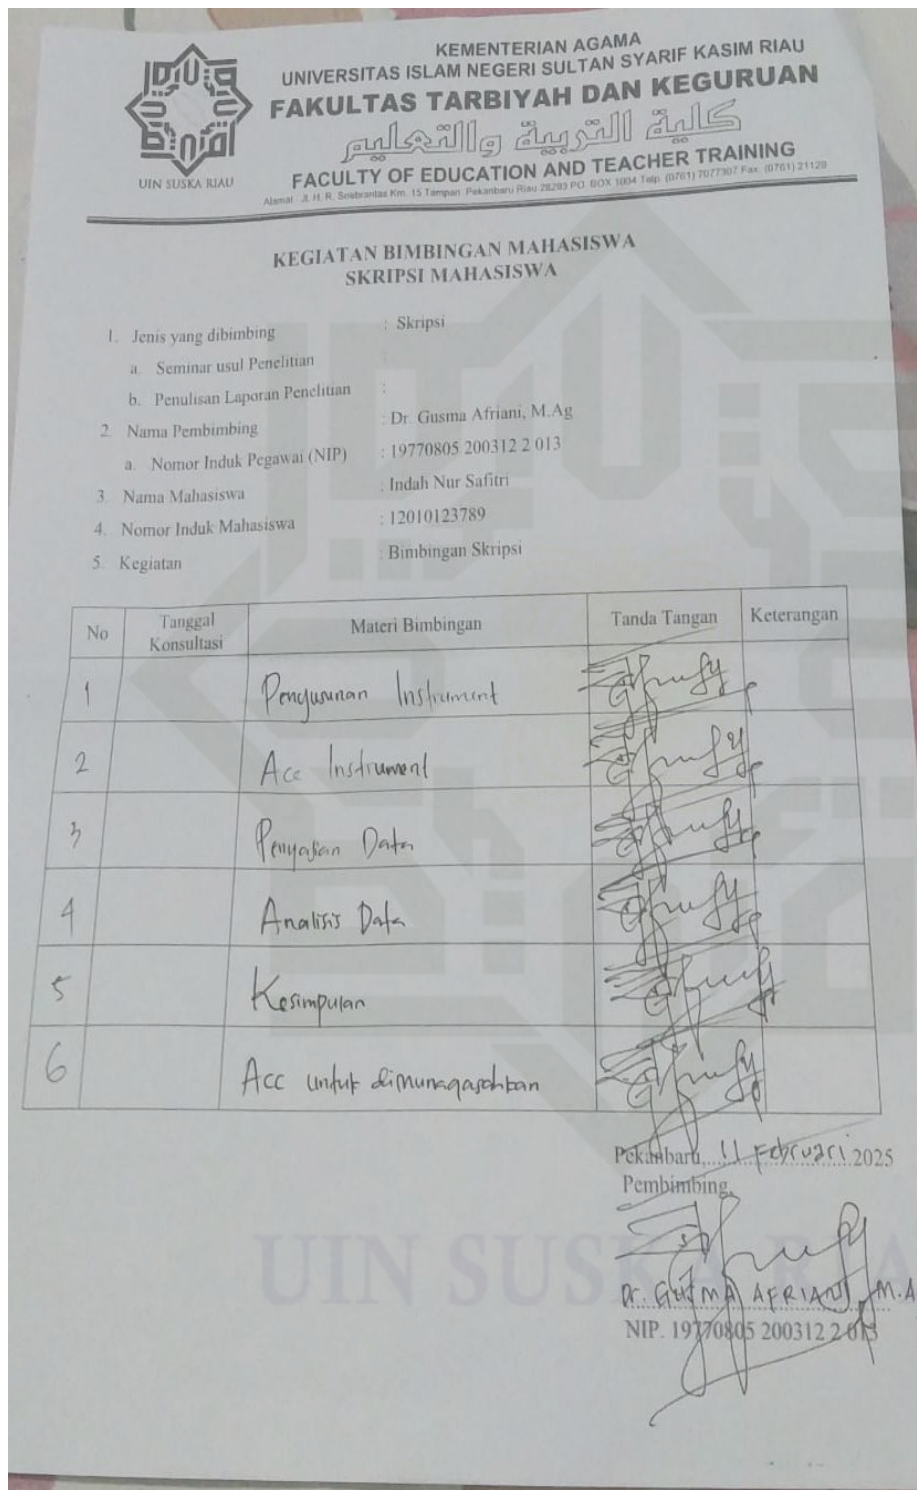 UIN SUSKA RIAU
KEMENTERIAN AGAMA
UNIVERSITAS ISLAM NEGERI SULTAN SYARIF KASIM RIAU
FAKULTAS TARBIYAH DAN KEGURUAN
كلية التربية والتعليم
FACULTY OF EDUCATION AND TEACHER TRAINING
Alamat : Jl. H. R. Soebrantas Km. 15 Tampan Pekanbaru Riau 28293 PO. BOX 1004 Telp. (0761) 7077307 Fax. (0761) 21129
KEGIATAN BIMBINGAN MAHASISWA
SKRIPSI MAHASISWA
1. Jenis yang dibimbing : Skripsi
a. Seminar usul Penelitian
b. Penulisan Laporan Penelitian :
2. Nama Pembimbing : Dr. Gusma Afriani, M.Ag
a. Nomor Induk Pegawai (NIP) : 19770805 200312 2 013
3. Nama Mahasiswa : Indah Nur Safitri
4. Nomor Induk Mahasiswa : 12010123789
5. Kegiatan : Bimbingan Skripsi
No Tanggal Konsultasi Materi Bimbingan Tanda Tangan Keterangan
1 Penyusunan Instrument
2 Acc Instrument
3 Penyajian Data
4 Analisis Data
5 Kesimpulan
6 Acc untuk dimunaqasahkan
Pekanbaru, 11 Februari 2025
Pembimbing,
Dr. GUSMA AFRIANI, M.A
NIP. 19770805 200312 2 013
UIN SUSKA RIA